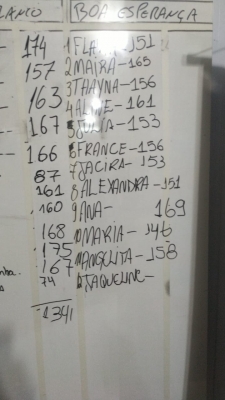 BOA ESPERANÇA
174 1 FLA 151
157 2 MAIRA-165
163 3 THAYNA-156
167 4 ALINE-161
5 JULIA-153
166 6 FRANCE-156
87 7 JACIRA-153
161 8 ALEXANDRA-151
160 9 ANA- 169
168 10 MARIA-146
175 11 ANGELITA-158
167 12 JAQUELINE-
74
1341